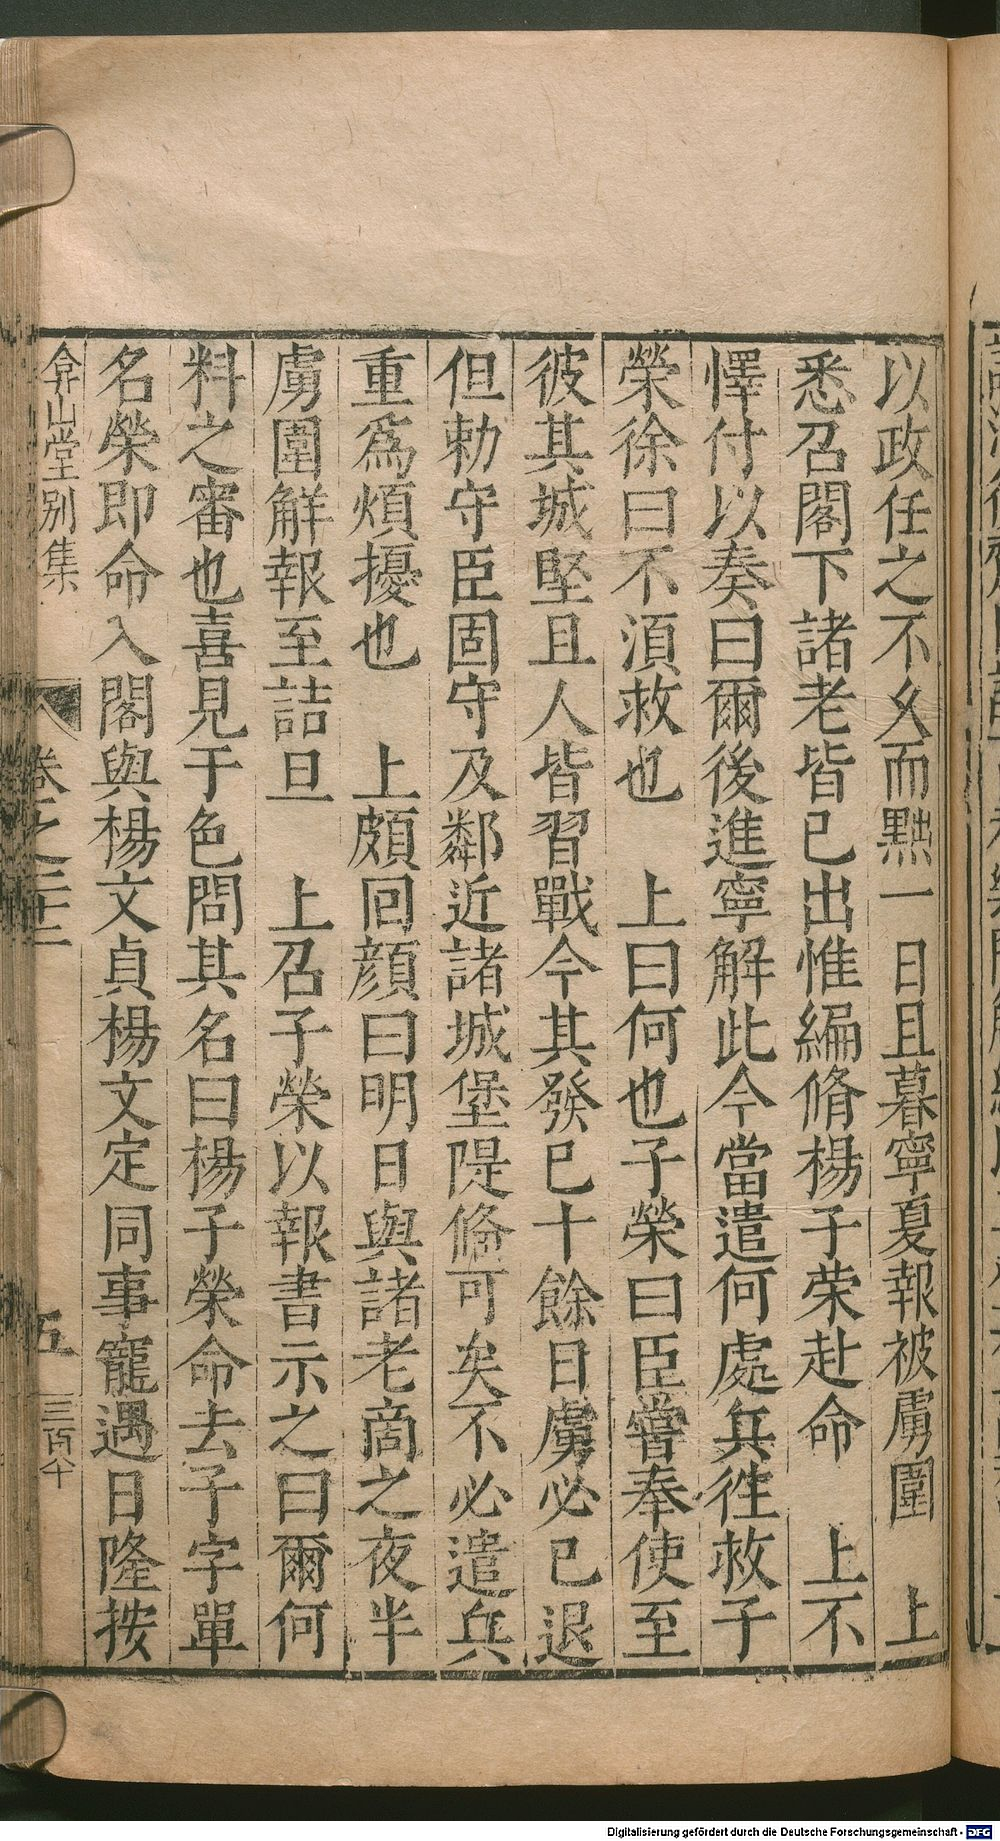 以政任之不久而黜一日且暮寧夏報被虜圍　上
悉召閣下諸老皆已出惟編脩楊子荣赴命　上不
懌付以奏曰爾後進寧解此今當遣何處兵徃救子
榮徐曰不湏救也　上曰何也子榮曰臣嘗奉使至
彼其城堅且人皆習戰今其發已十餘日虜必已退
但勅守臣固守及鄰近諸城堡隄俻可矣不必遣兵
重為煩擾也　上頗回顔曰明日與諸老商之夜半
虜圍解報至詰旦　上召子榮以報書示之曰爾何
料之審也喜見于色問其名曰楊子榮命去子字單
名榮即命入閣與楊文貞楊文定同事寵遇日隆按
弇山堂别集
卷之二十二
五
三百八十
Digitalisierung gefördert durch die Deutsche Forschungsgemeinschaft - DFG